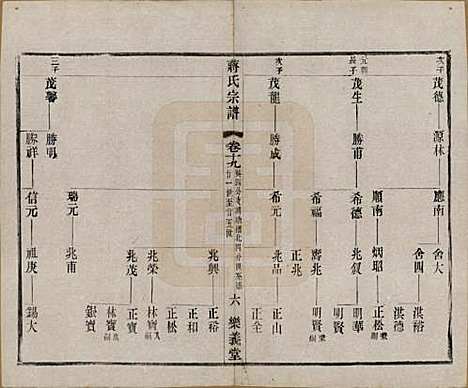 次子
茂德
源林
應南
舍大
舍四
洪裕
洪德
順南
炳昭
正松
元朝
長子
茂生
勝甫
希德
兆叙
明華
明賢
希福
齊兆
明賢
次子
茂龍
勝成
希元
兆品
正兆
正山
正全
蔣氏宗譜
卷十九
六
樂義堂
兆興
正裕
正和
正松
三子
茂馨
勝明
瑞元
兆甫
兆榮
林寶
兆茂
林寶
銀寶
勝祥
信元
祖庚
錫大